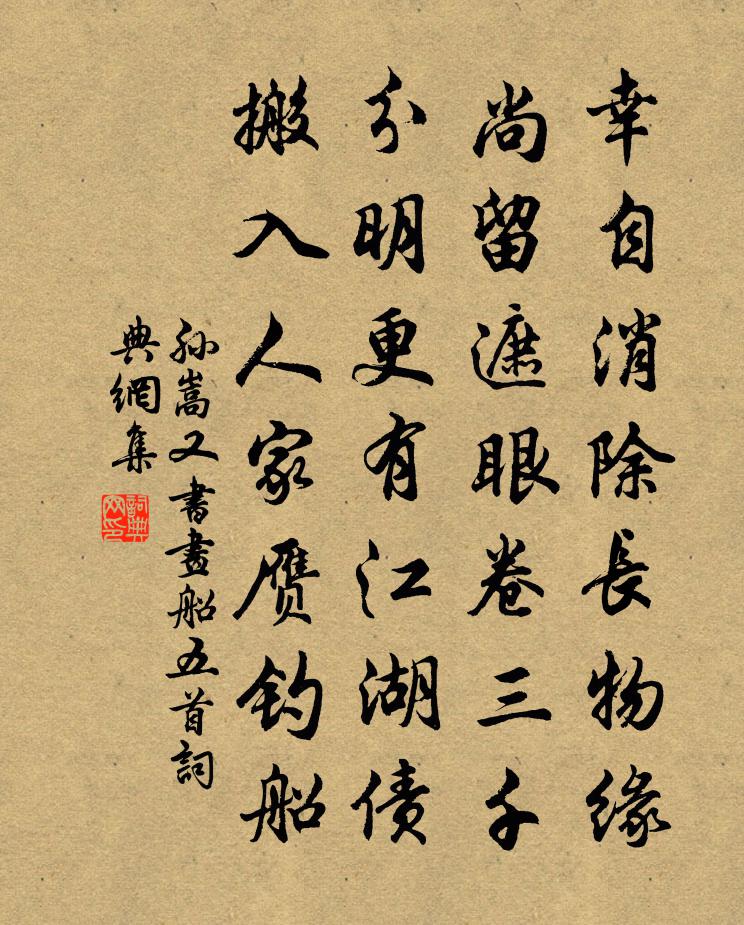 幸自消除長物緣
尚留遮眼卷三千
分明更有江湖債
搬入人家贗钓船
孙嵩又書畫船五首詞
典網集
詞典网印